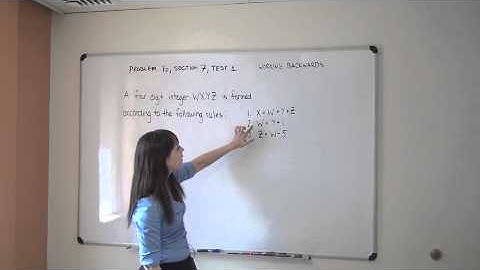 PROBLEM 12, SECTION 7, TEST 1 WORKING BACKWARDS
A four digit integer WXYZ is formed
according to the following rules:
1. X = W + Y + Z
2. W = Y + 1
Z = W - 5